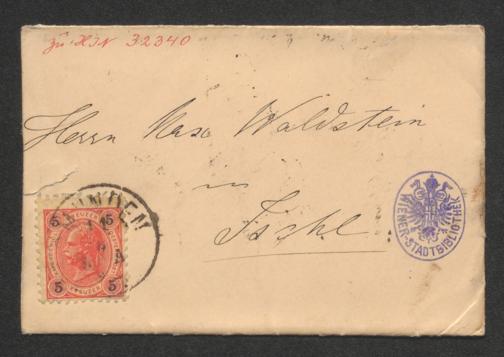 zu HIN 32340
Herrn Max Waldstein
in
Ischl
GMUNDEN
5 KREUZER 5
5 KREUZER 5
WIENER-STADTBIBLIOTHEK